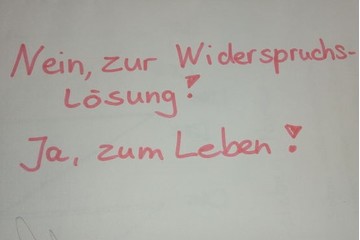 Nein, zur Widerspruchs-
Lösung!
Ja, zum Leben!